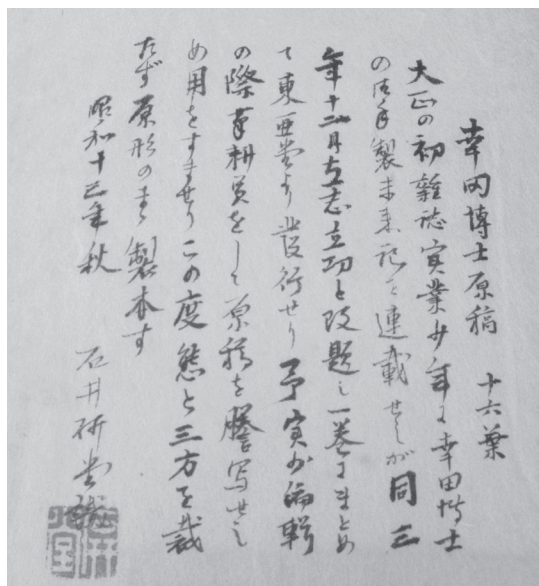 幸田博士原稿 十六葉
大正の初雑誌実業少年に幸田博士
の御手製未来記を連載せしが同三
年十二月立志立功と改題し一巻にまとめ
て東亜堂より發行せり予実少編輯
の際筆耕員をして原稿を謄写せし
め用をすませりこの度態と三方を裁
たず原形のまゝ製本す
昭和十三年秋
石井研堂識